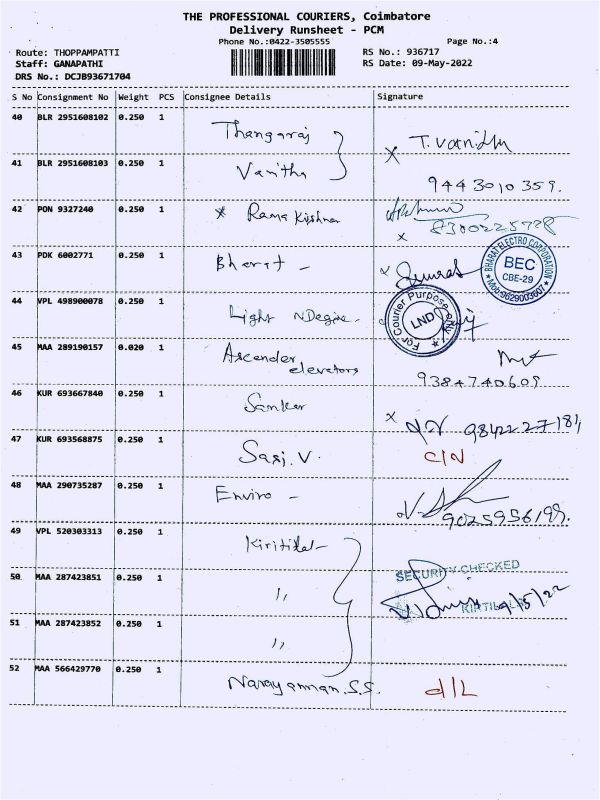 THE PROFESSIONAL COURIERS, Coimbatore
Delivery Runsheet - PCM
Phone No.:0422-3505555 Page No.:4
Route: THOPPAMPATTI RS No.: 936717
Staff: GANAPATHI RS Date: 09-May-2022
DRS No.: DCJB93671704
S No Consignment No Weight PCS Consignee Details Signature
40 BLR 2951608102 0.250 1 Thangaraj T. Vanitha
41 BLR 2951608103 0.250 1 Vanitha 9443010359.
42 PON 9327240 0.250 1 * Rama Kishna x 8300225778
43 PDK 6002771 0.250 1 Bharat - x
BHARAT ELECTRO CORPORATION
BEC
CBE-29
Mob:9629003607
44 VPL 498900078 0.250 1 Light NDegire.
For Courier Purpose Only
LND
45 MAA 289190157 0.020 1 Ascender
elevators 9384740609
46 KUR 693667840 0.250 1 Sanker x 9842227181
47 KUR 693568875 0.250 1 Sasj. V. C/N
48 MAA 290735287 0.250 1 Enviro - 9025956199.
49 VPL 520303313 0.250 1 Kiritilal
50 MAA 287423851 0.250 1 ,,
SECURITY CHECKED
KIRTILAL 9/5/22
51 MAA 287423852 0.250 1 ,,
52 MAA 566429770 0.250 1 Narayannan.S.S. d/L